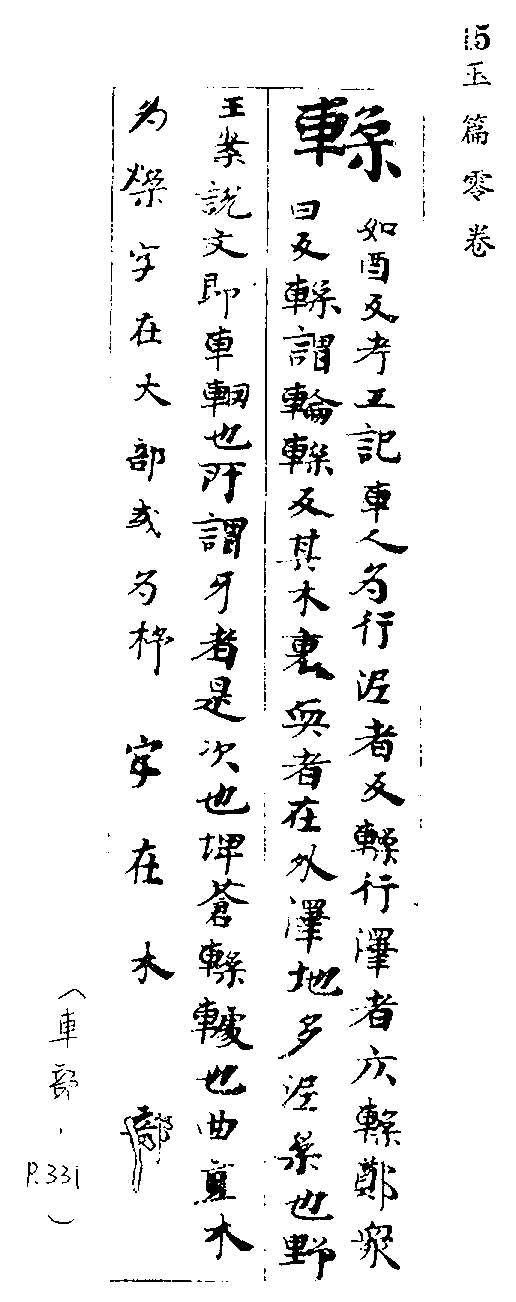 15玉篇零卷
輮
如酉反考工記車人為行泥者反輮行澤者仄輮鄭眾
曰反輮謂輪輮反其木裏耎者在外澤地多泥柔也野
王案說文即車輞也所謂牙者是次也埤蒼輮也曲直木
為字在大部或為字在木部
(車部,P.331)